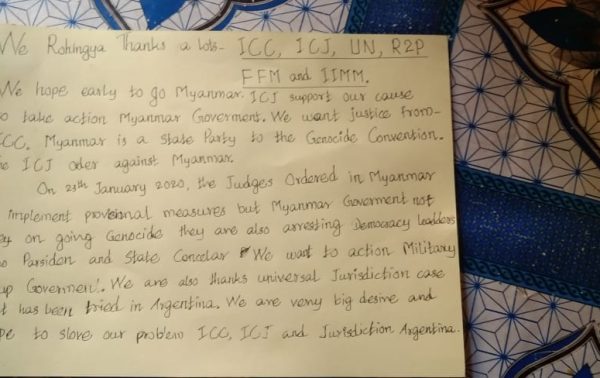 We Rohingya Thanks a lots- ICC, ICJ, UN, R2P
FFM and IIMM.
We hope early to go Myanmar. ICJ support our cause
to take action Myanmar Goverment. We want justice from-
ICC. Myanmar is a State Party to the Genocide Convention.
ICJ oder against Myanmar.
On 23th January 2020, the Judges Ordered in Myanmar
implement provisional measures but Myanmar Goverment not
on going Genocide they are also arresting Democracy leadders
Parsiden and State Concelar We want to action Military
Goverment. We are also thanks universal Jurisdiction case
it has been tried in Argentina. We are veny big desire and
to slove our problem ICC, ICJ and Jurisdiction Argentina.